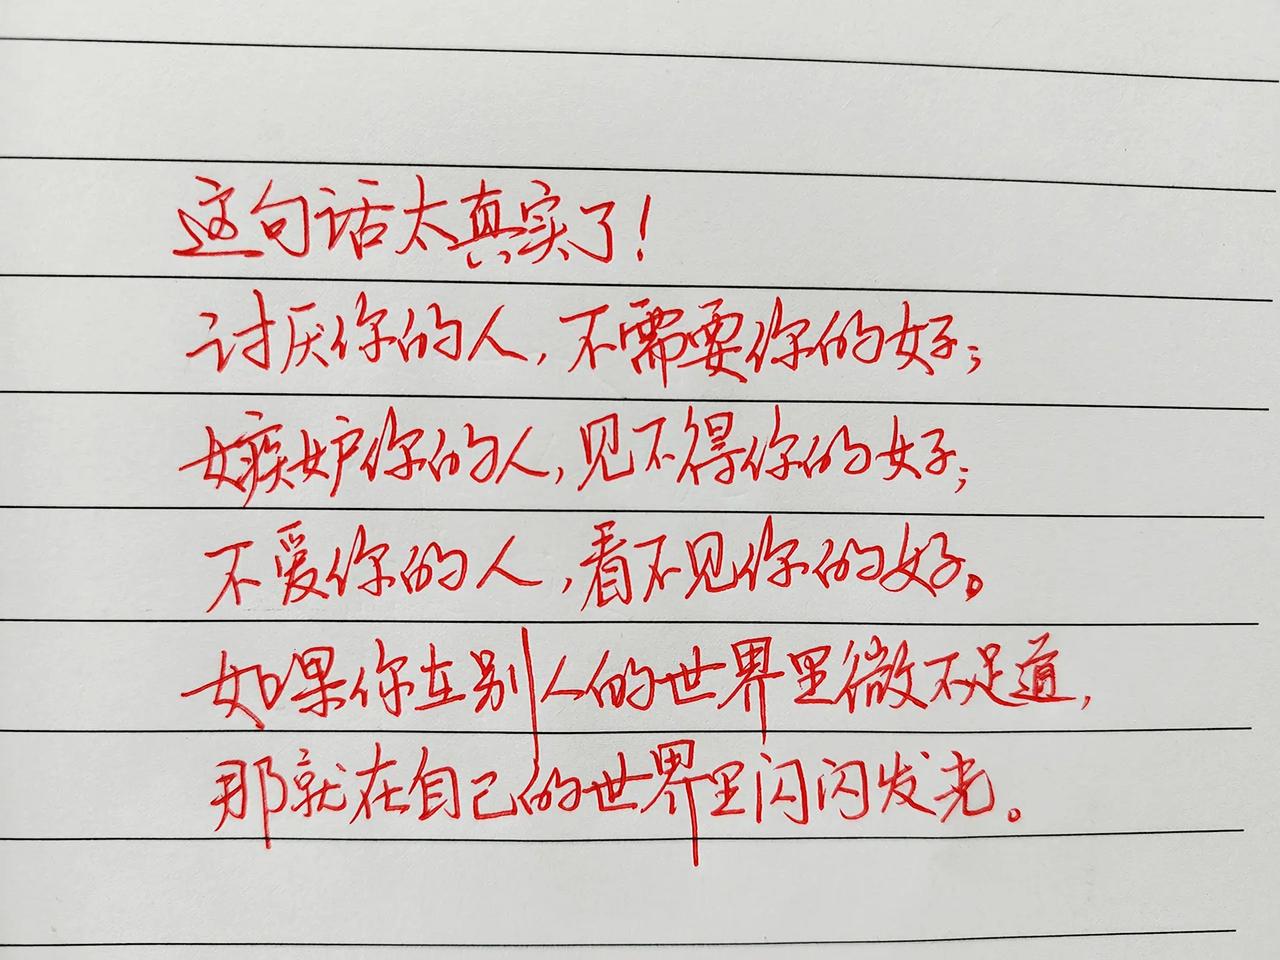 这句话太真实了!
讨厌你的人,不需要你的好;
嫉妒你的人,见不得你的好;
不爱你的人,看不见你的好。
如果你在别人的世界里微不足道,
那就在自己的世界里闪闪发光。